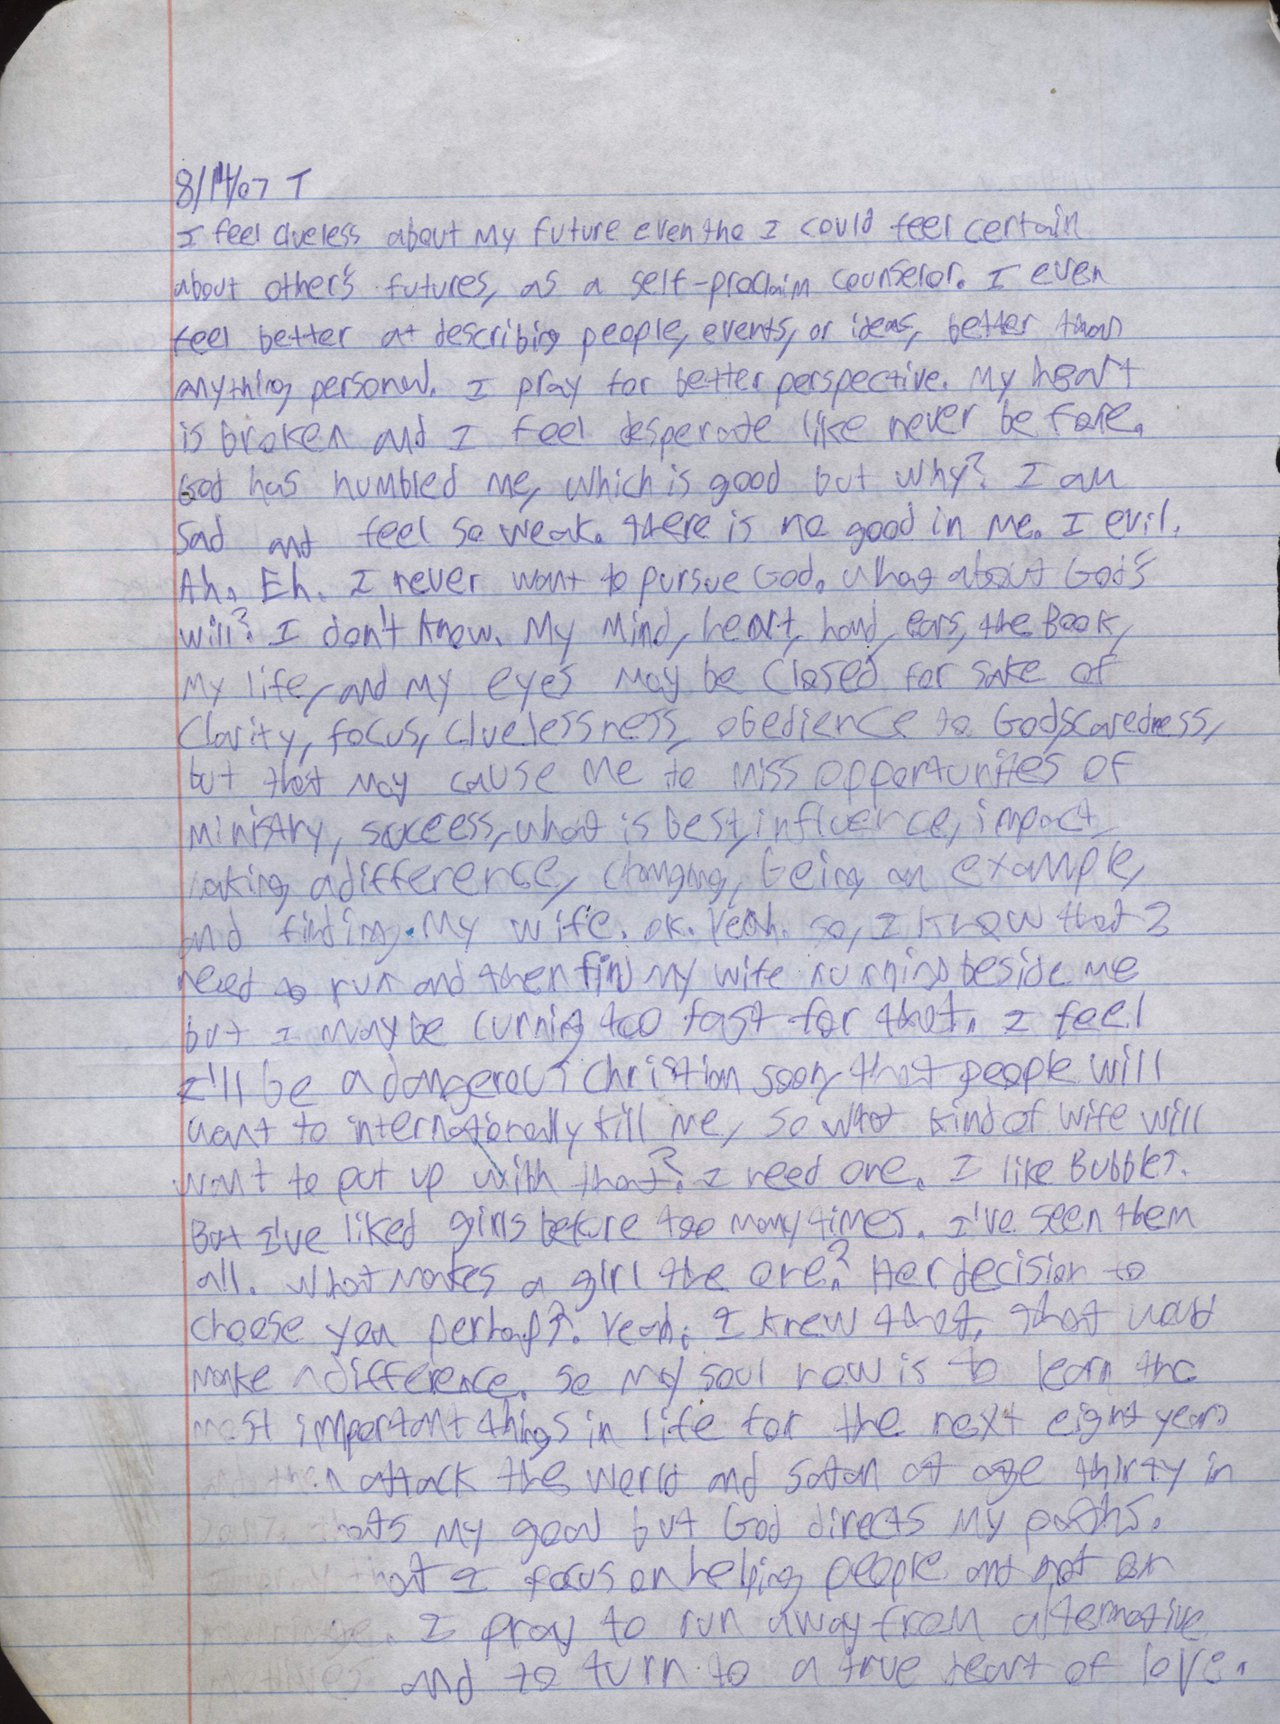 8/14/07 T
I feel clueless about my future even tho I could feel certain
about other's futures, as a self-proclaim counselor. I even
feel better at describing people, events, or ideas, better than
anything personal. I pray for better perspective. My heart
is broken and I feel desperate like never before.
God has humbled me, which is good but why? I am
sad and feel so weak. there is no good in me. I evil.
Ah. Eh. I never want to pursue God. What about God's
will? I don't know. My mind, heart, hand, ears, the Book,
my life, and my eyes may be closed for sake of
clarity, focus, cluelessness, obedience to God, scaredness,
but that may cause me to miss opportunites of
ministry, success, what is best, influence, impact,
making a difference, changing, being an example,
and finding my wife. ok. Yeah. so, I know that I
need to run and then find my wife running beside me
but I may be running too fast for that. I feel
I'll be a dangerous Christian soon that people will
want to internationally kill me, so what kind of wife will
want to put up with that? I need one. I like Bubbles.
But I've liked girls before too many times. I've seen them
all. What makes a girl the one? Her decision to
choose you perhaps? Yeah. I knew that. that would
make a difference. So my soul now is to learn the
most important things in life for the next eight years
then attack the world and Satan at age thirty in
my goal but God directs my paths.
I focus on helping people and not on
I pray to run away from alternative
and to turn to a true heart of love.